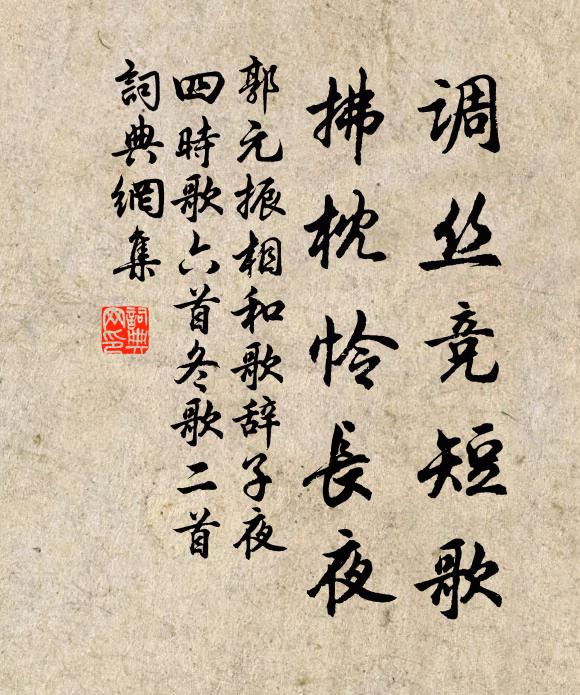 调丝竞短歌
拂枕怜長夜
郭元振相和歌辞子夜
四時歌六首冬歌二首
詞典網集
詞典網印